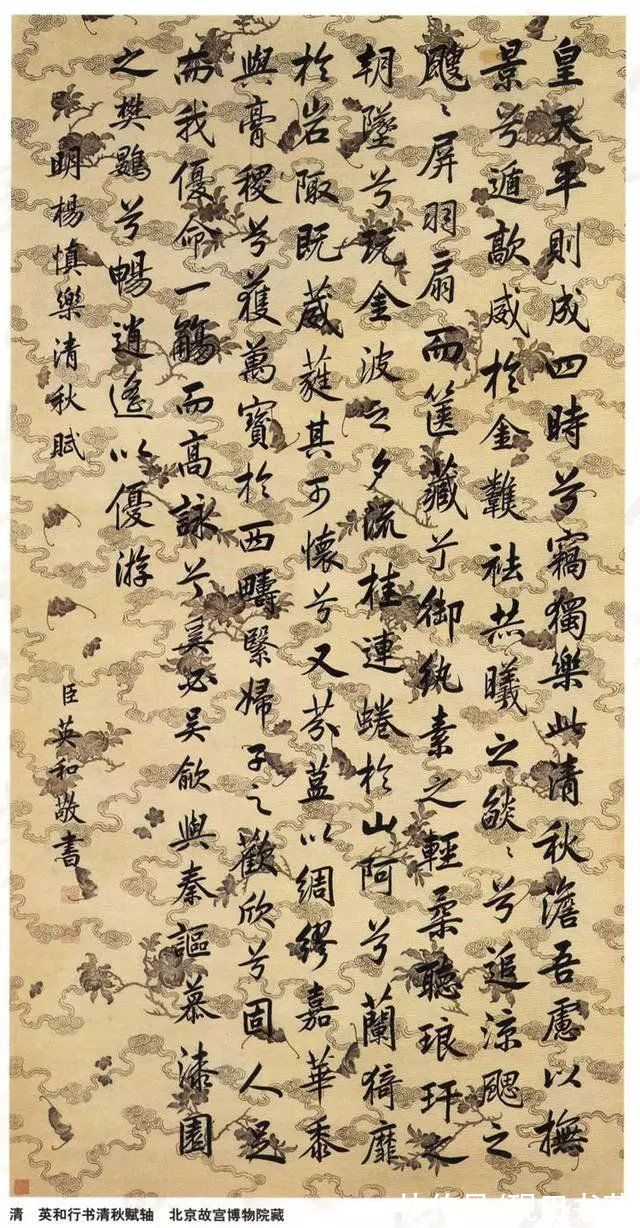 皇天平則成四時兮竊獨樂此清秋澹吾慮以撫
景兮遁歊威於金祛赫曦之燄〻兮追涼颸之
颼〻屏羽扇而篋藏兮御紈素之輕柔聽琅玕之
朝墜兮玩金波之夕流桂連蜷於山阿兮蘭猗靡
於岩陬既葳蕤其可懷兮又芬葢以綢繆嘉華黍
與膏稷兮獲萬寶於西疇繄婦子之歡欣兮固人足
而我優命一觴而高詠兮奚必吳歈與秦謳慕漆園
之樊鷃兮暢逍遙以優游
明楊慎樂清秋賦
臣英和敬書
清 英和行书清秋赋轴 北京故宫博物院藏